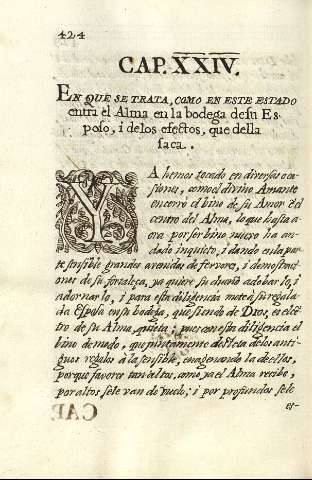 424
CAP. XXIV.
EN QUE SE TRATA, COMO EN ESTE ESTADO
entra el Alma en la bodega de su Es-
poso, i de los efectos, que della
saca..
YA hemos tocado en diversas oca-
siones, como el divino Amante
encerrò el bino de su Amor ẽl
centro del Alma, lo que hasta a-
ora por ser bino nuevo ha an-
dado inquieto, i dando en la par-
te sensible grandes avenidas de fervores, i demostracio-
nes de su fortaleza, ya quiere su dueño adobarlo, i
adornarlo, i para esta diligencia mete à su regala-
da Esposa en su bodega, que siendo de Dios, es el cẽ-
tro de su Alma, quieta; pues con esta diligencia el
bino demodo, que juntamente desteta de los anti-
guos regalos à la sensible, enagenando la de ellos,
porque favores tan altos, como ya el Alma recibe,
por altos se le van de vuelo; i por profundos se le
es-
CAP